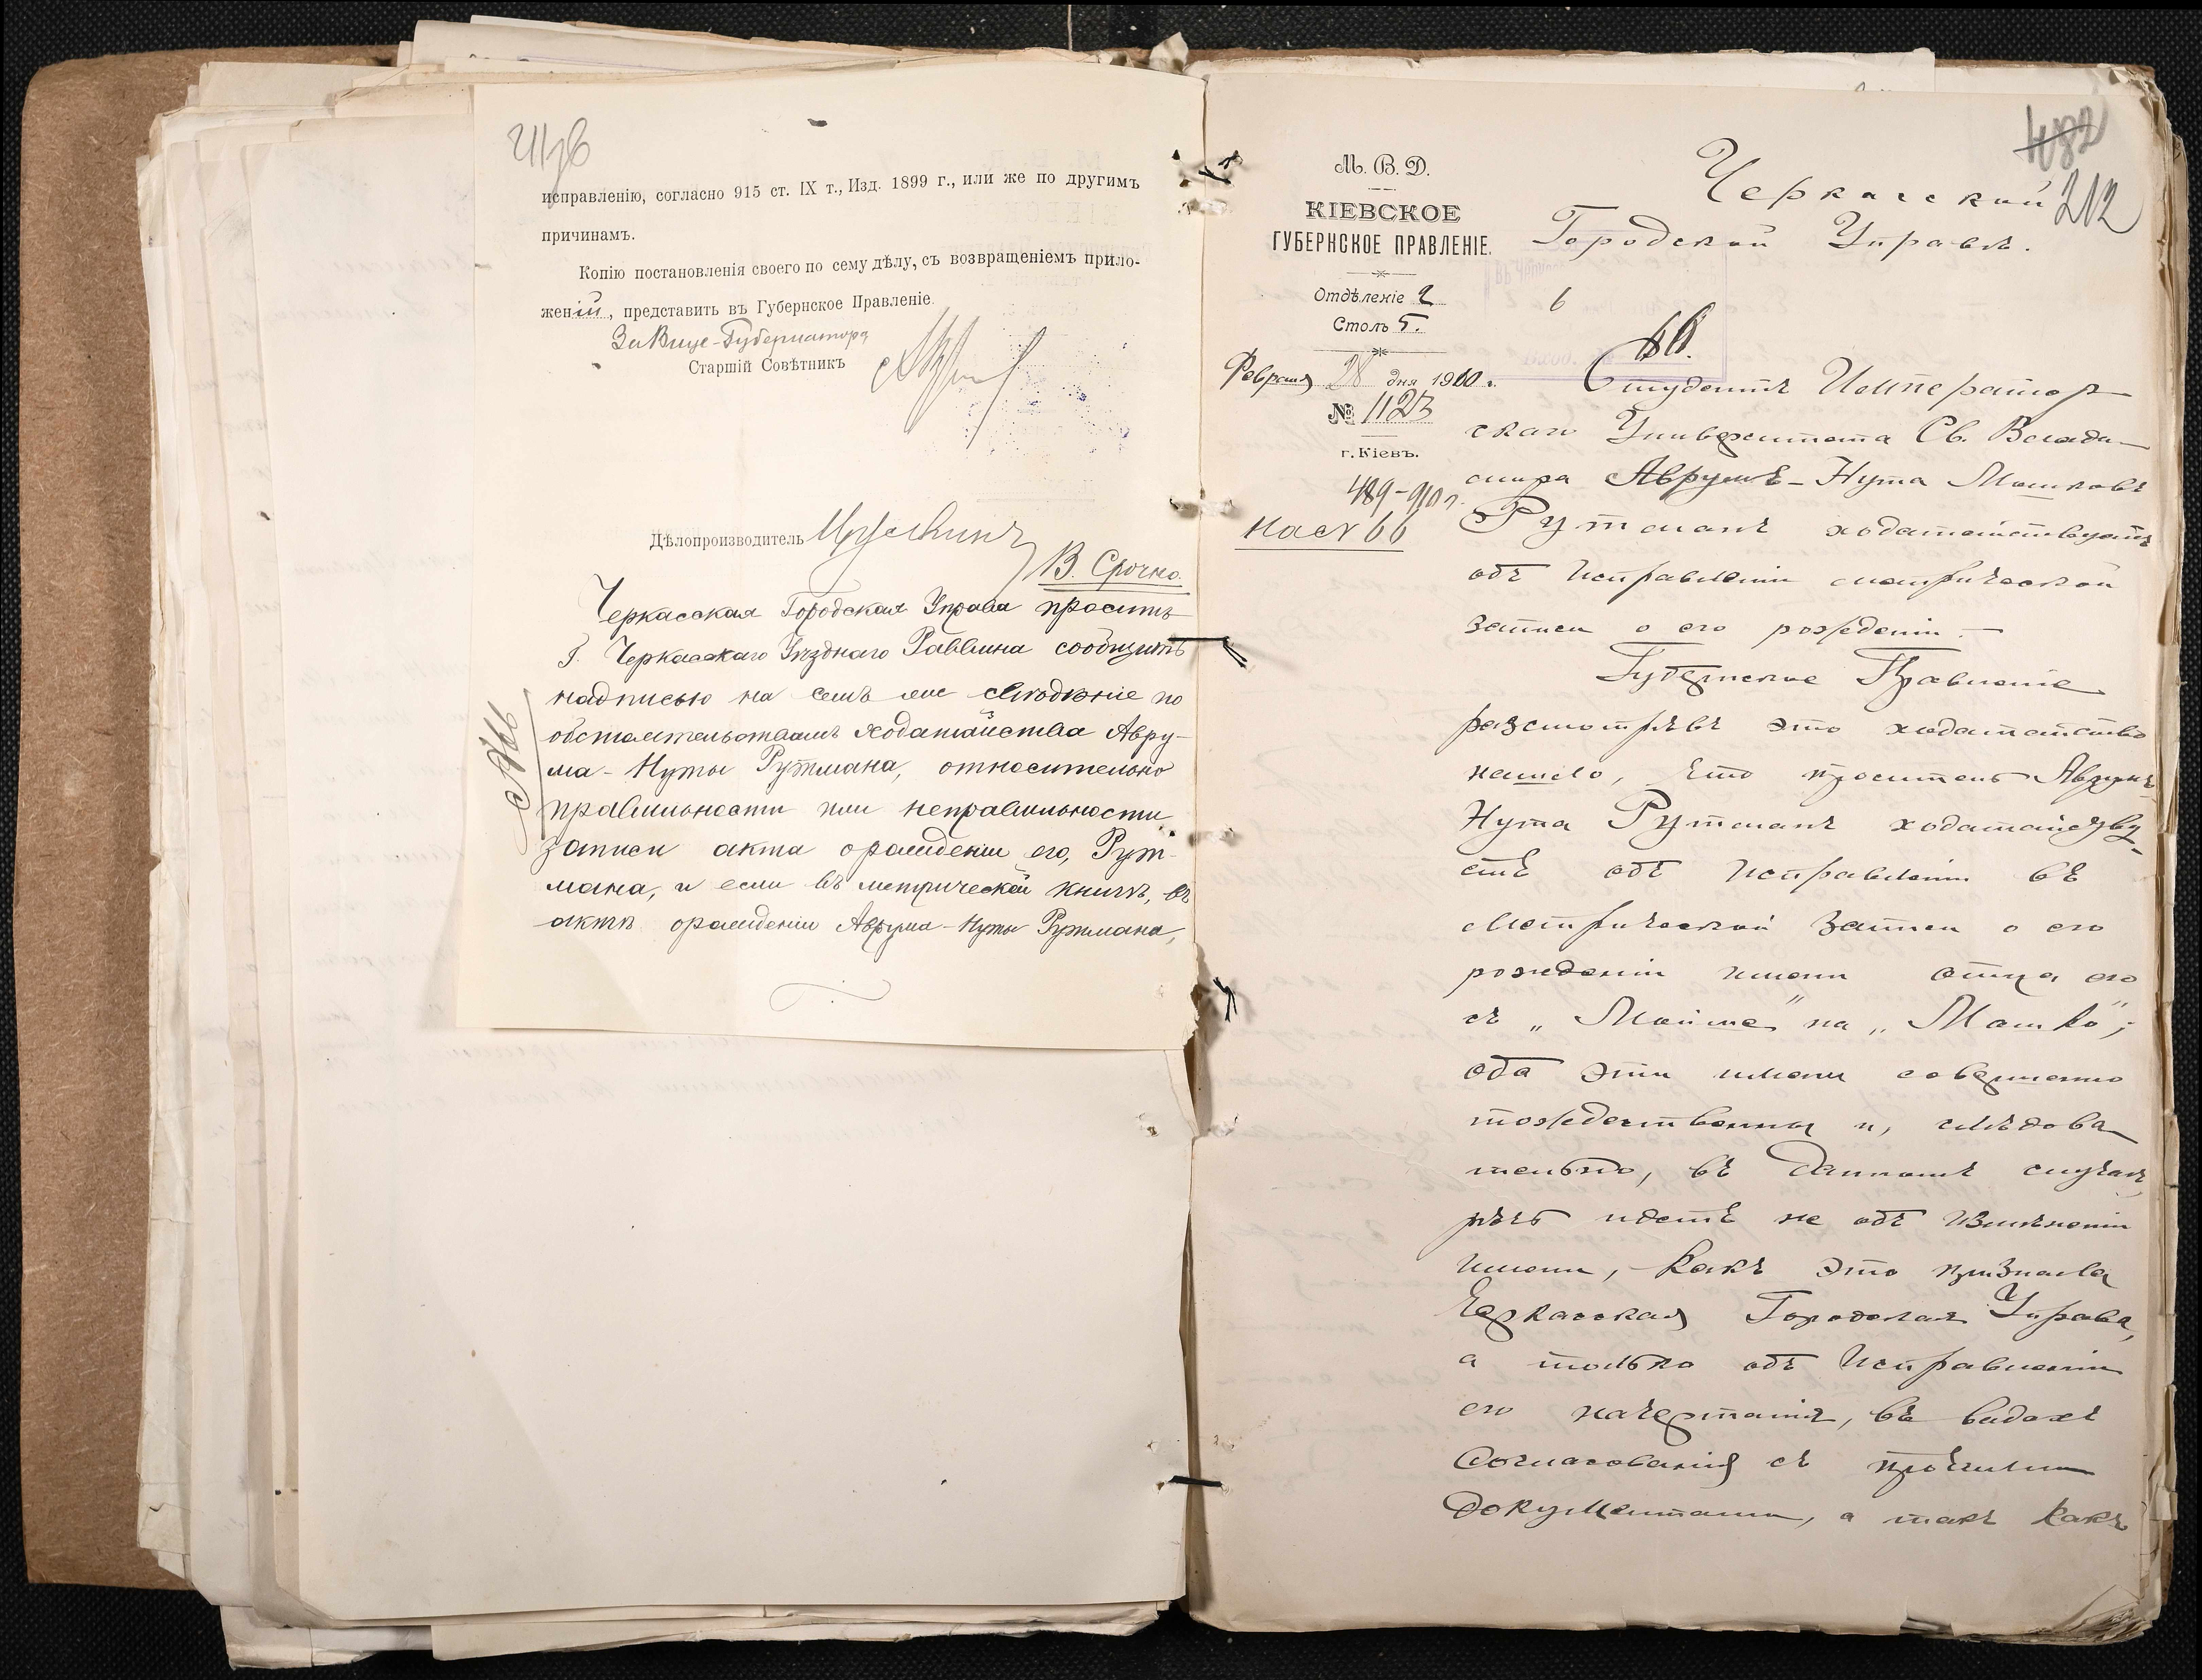 исправленію, согласно 915 ст. IX т., Изд. 1899 г., или же по другимъ
причинамъ.
Копію постановленія своего по сему дѣлу, съ возвращеніемъ прило-
женій, представить въ Губернское Правленіе.
За Вице-Губернатора
Старшій Совѣтникъ
Дѣлопроизводитель
В. Срочно.
Черкасская Городская Управа проситъ
Г. Черкасскаго Уѣзднаго Раввина сообщить
надписью на семъ же свѣдѣніе по
обстоятельствамъ ходатайства Авру-
ма-Нуты Рутмана, относительно
правильности или неправильности
записи акта о рожденіи его, Рут-
мана, и если въ метрической книгѣ, въ
актѣ о рожденіи Аврума-Нуты Рутмана,
482
212
М. В. Д.
КІЕВСКОЕ
ГУБЕРНСКОЕ ПРАВЛЕНІЕ.
Отдѣленіе 2
Столъ 5.
Февраля 28 дня 1910 г.
№ 1123
г. Кіевъ.
489-910 г.
на № 66
Черкасской
Городской Управѣ.
Студентъ Император
скаго Университета Св. Влади-
мира Аврумъ-Нута Мошковъ
Рутманъ ходатайствуетъ
объ исправленіи метрической
записи о его рожденіи.—
Губернское Правленіе
разсмотрѣвъ это ходатайство
нашло, что проситель Аврумъ-
Нута Рутманъ ходатайству-
етъ объ исправленіи въ
метрической записи о его
рожденіи имени отца его
съ „Мойше" на „Мошко";
оба эти имени совершенно
тождественны и, слѣдова
тельно, въ данномъ случаѣ
рѣчь идетъ не объ измѣненіи
имени, какъ это признала
Черкасская Городская Управа,
а только объ исправленіи
его начертанія, въ видахъ
согласованія съ прочими
документами, а такъ какъ